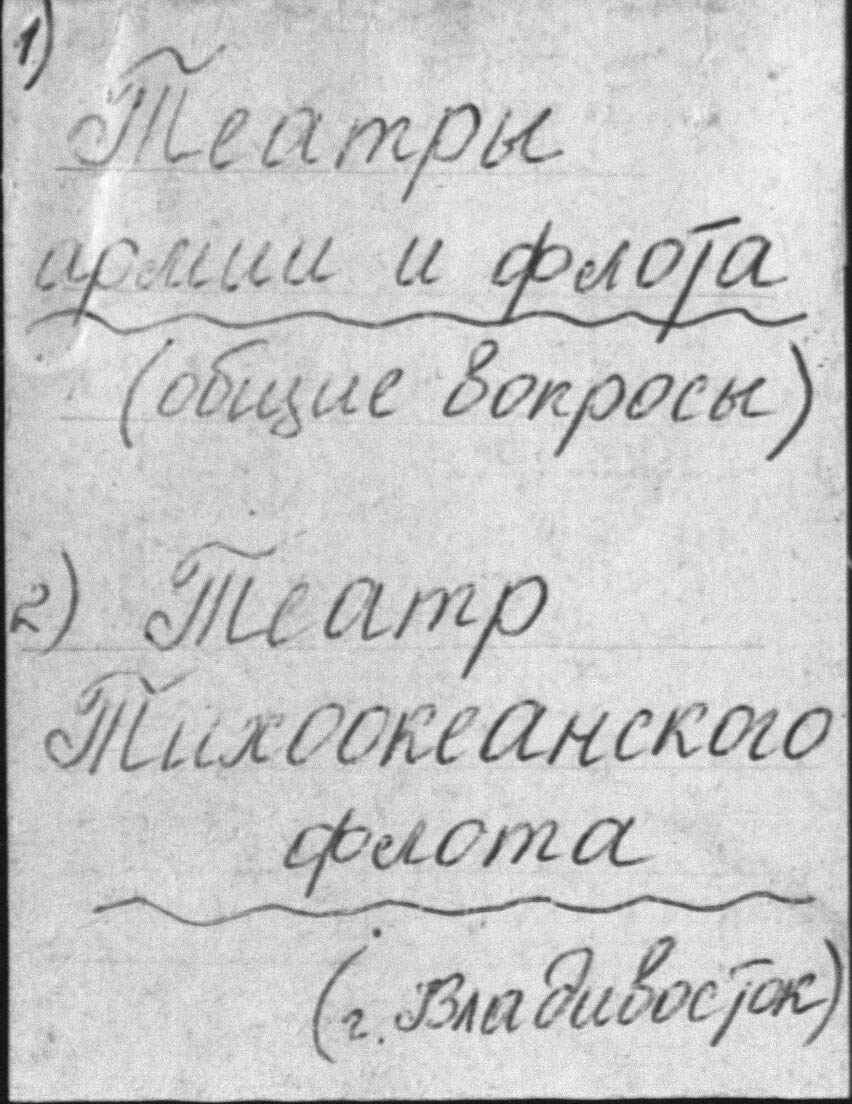 1)
Театры
армии и флота
(общие вопросы)
2) Театр
Тихоокеанского
флота
(г. Владивосток)